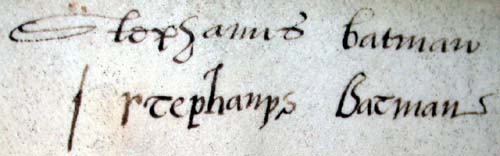 Stephanus batman
Stephanus Batmans